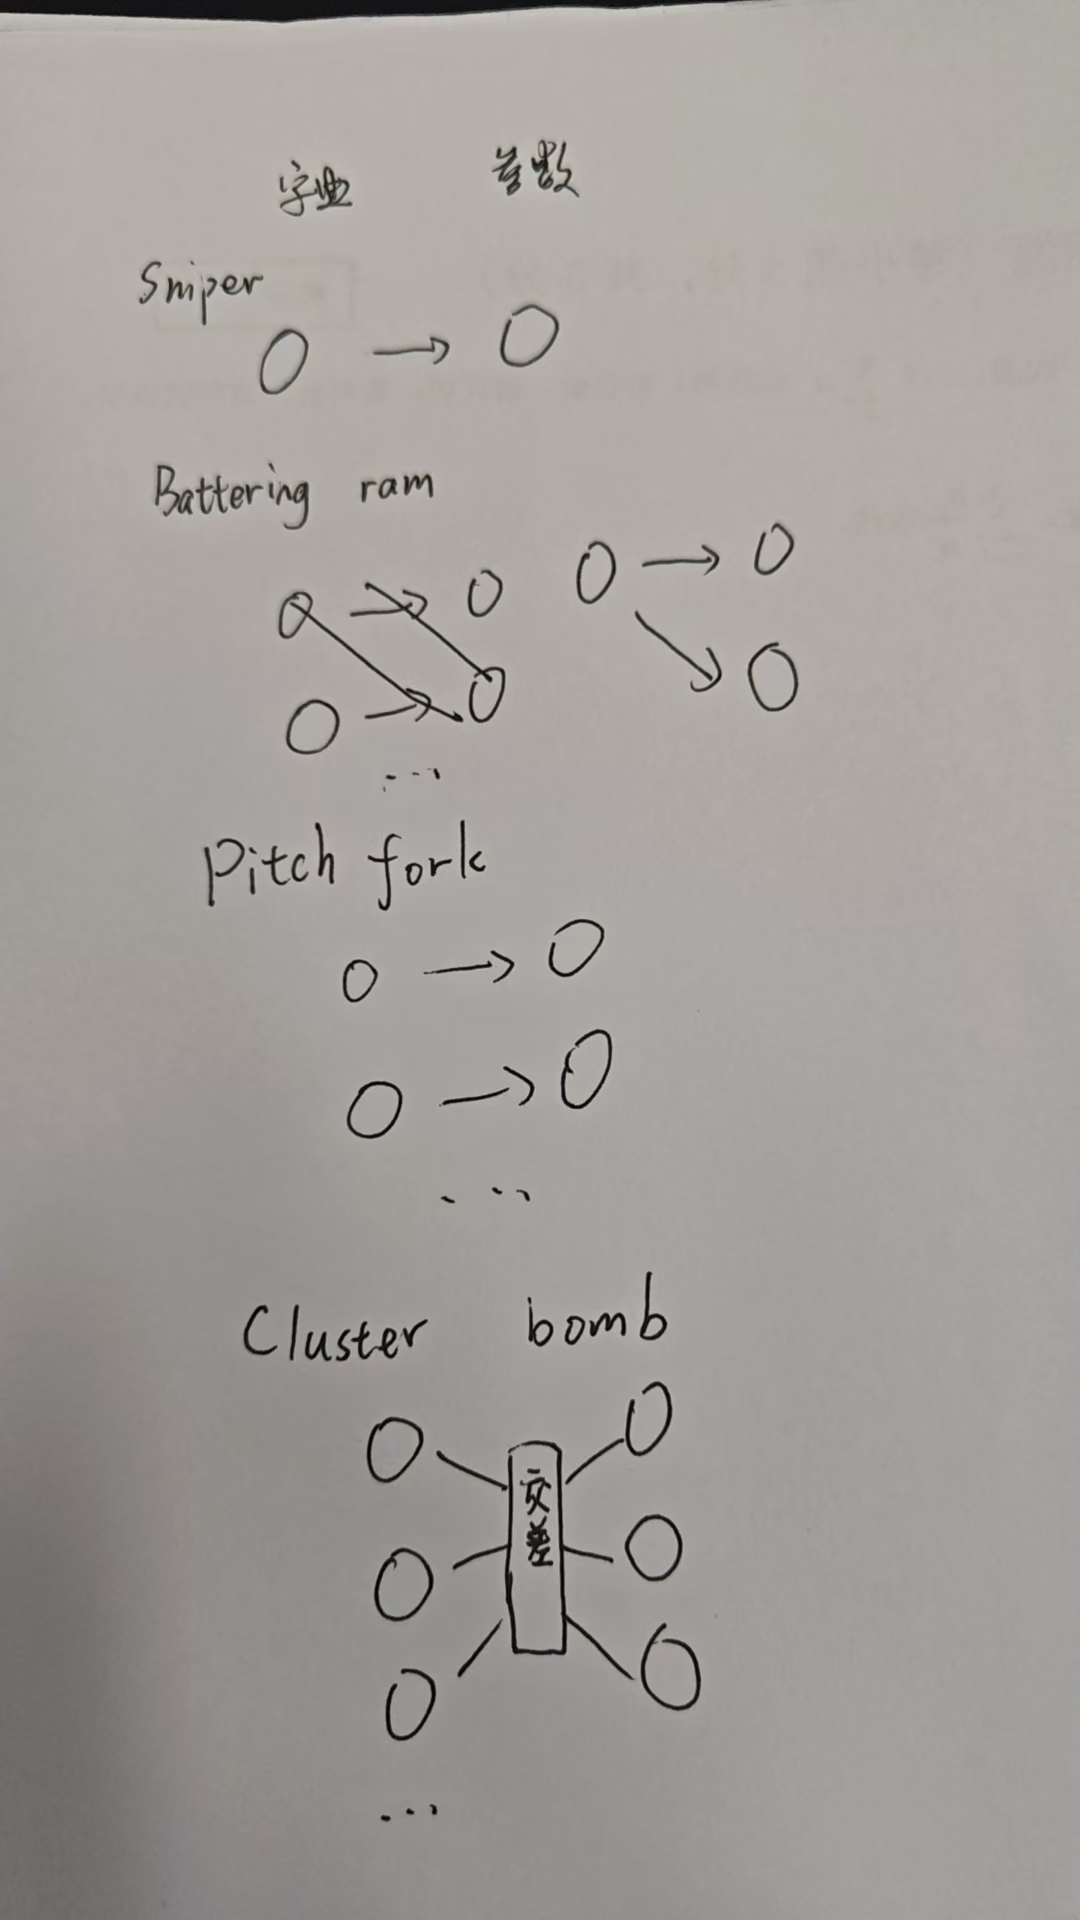 字典 参数
Sniper
Battering ram
...
Pitch fork
...
Cluster bomb
交差
...